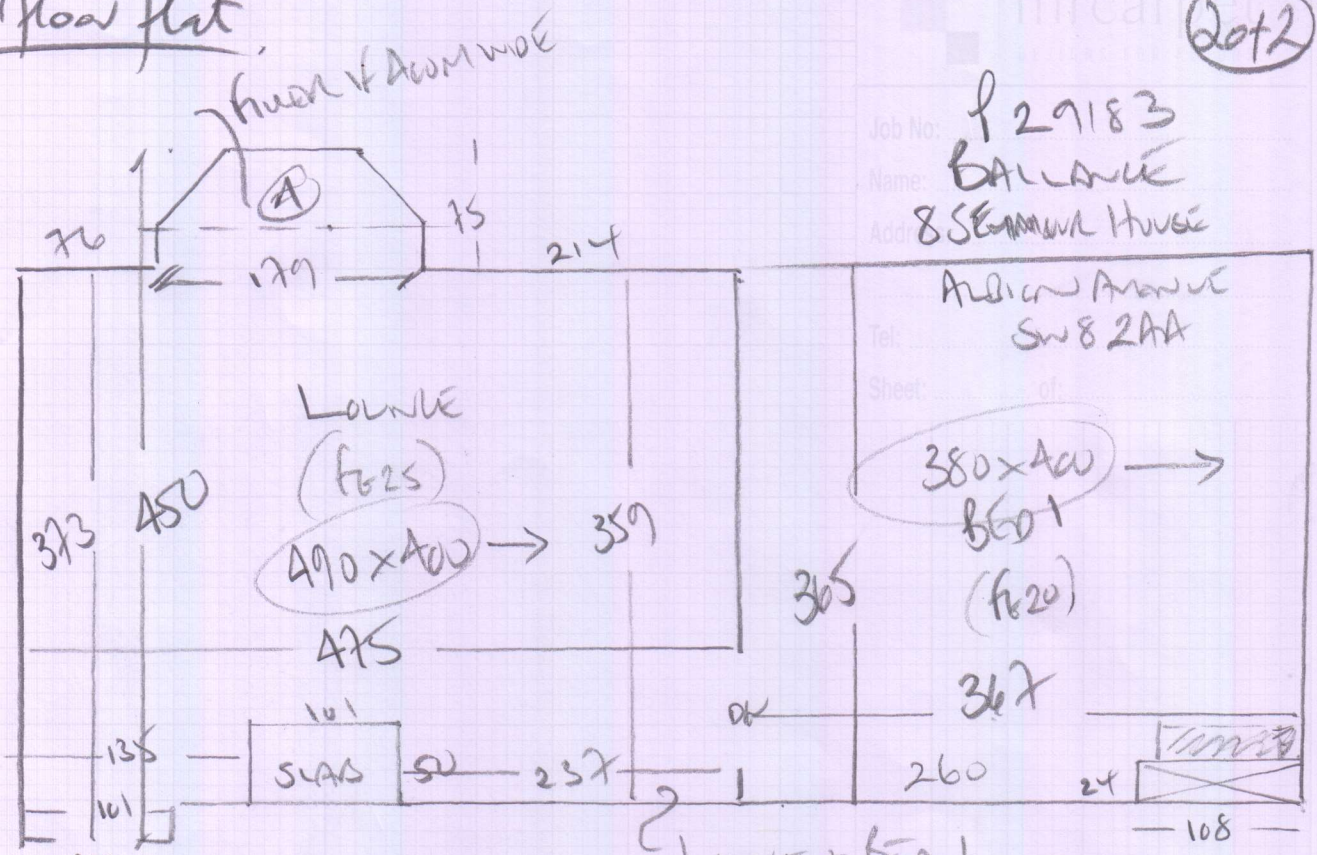 floor flat
2 of 2
mrcarpet
Job No: P29183
Name: BALLANCE
Address: 8 SEYMOUR HOUSE
ALBION AVENUE
Tel: SW8 2AA
Sheet: of:
A
76
179
75
214
LOUNGE
(FE25)
490 x 400
373
450
359
475
101
135
SLABS
50
237
101
380 x 400
BED 1
(FE20)
365
367
260
24
108